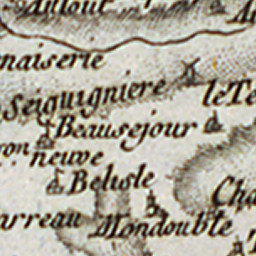 Aulout
naiserie
Seiguigniere
le Te
Beausejour
ron
neuve
Belisle
Cha
arreau
Mondouble